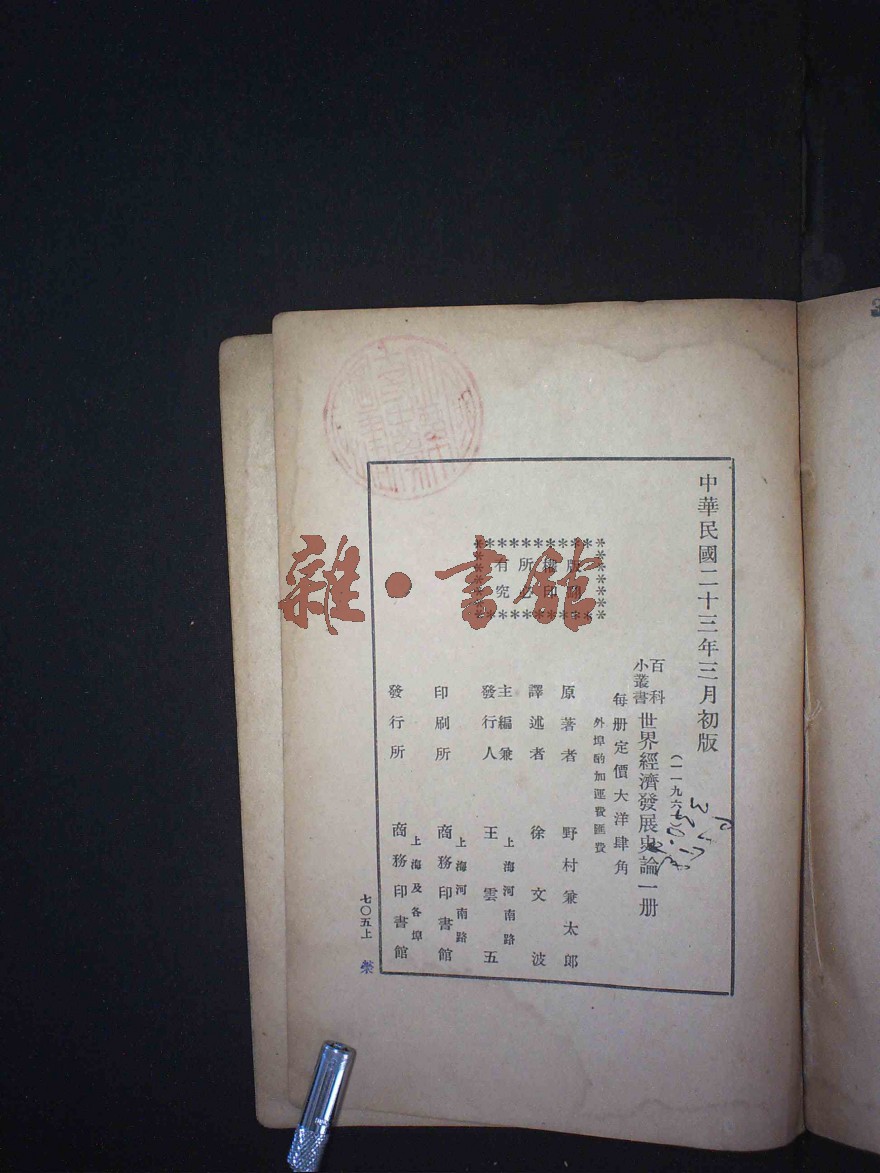 中華民國二十三年三月初版
(一一九六
百科
小叢書
世界經濟發展史論一册
每册定價大洋肆角
外埠酌加運費匯費
版權所有
翻印必究
原著者 野村兼太郎
譯述者 徐文波
主編兼
發行人
上海河南路
王雲五
印刷所
上海河南路
商務印書館
發行所
上海及各埠
商務印書館
七〇五上
雜·書館